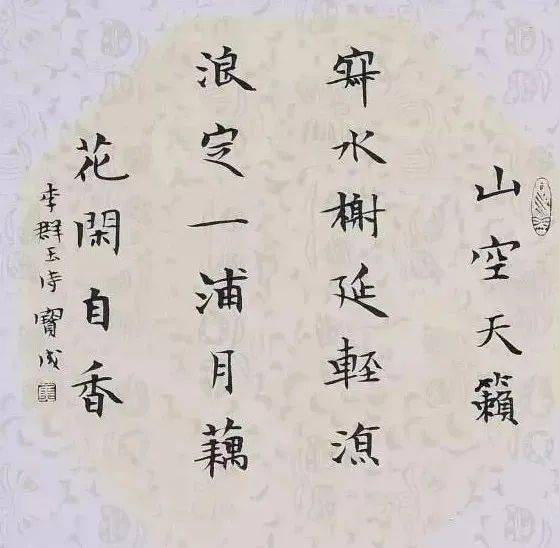 山空天籟
寂水榭延輕涼
浪定一浦月藕
花閑自香
李群玉诗 寶成